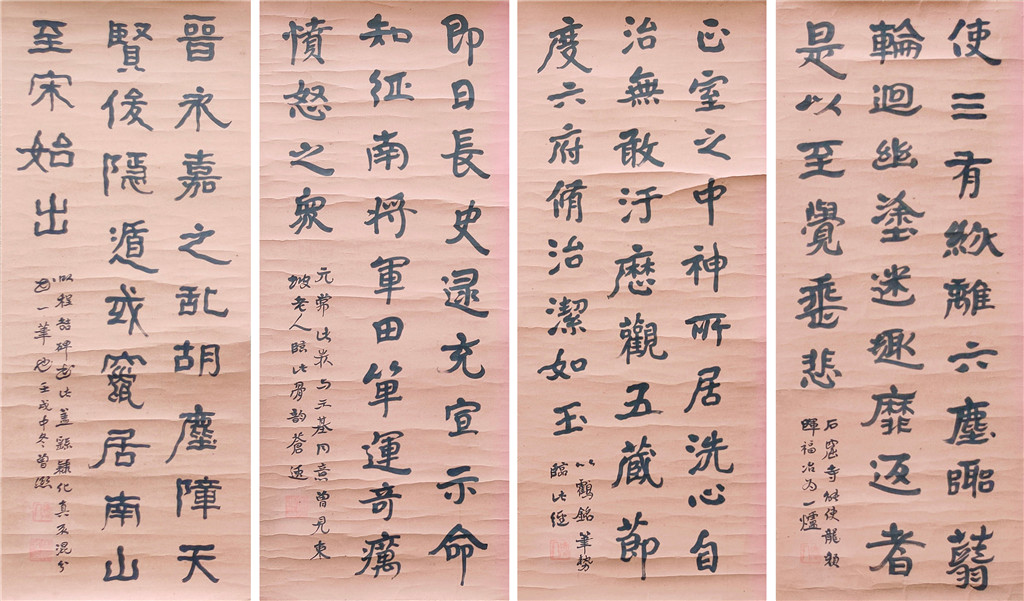 使三有離六塵
輪迴幽塗迷趣靡返者
是以至覺垂悲
石窟寺能使龍顏
暉福冶為一爐
正室之中神所居洗心自
治無敢汙歷觀五藏節
度六府脩治潔如玉
以鶴銘筆勢
臨此經
即日長史逯充宣示命
知征南將軍田單運奇癘
憤怒之眾
元常此表与三基同意曾見東
坡老人臨此骨韵蒼遠
晉永嘉之亂胡塵障天
賢俊隱遁或竄居南山
至宋始出
以程哲碑書此蓋繇隸化真混
一筆也壬戌中冬曾熙